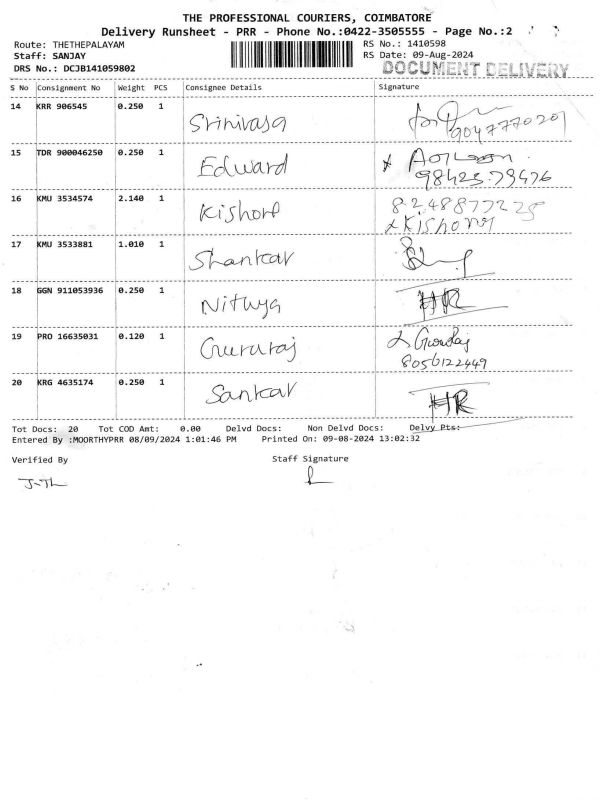 THE PROFESSIONAL COURIERS, COIMBATORE
Delivery Runsheet - PRR - Phone No.:0422-3505555 - Page No.:2
Route: THETHEPALAYAM RS No.: 1410598
Staff: SANJAY RS Date: 09-Aug-2024
DRS No.: DCJB141059802 DOCUMENT DELIVERY
S No Consignment No Weight PCS Consignee Details Signature
14 KRR 906545 0.250 1 Srinivasa
9047770201
15 TDR 900046250 0.250 1 Edward
16 KMU 3534574 2.140 1 Kishore
17 KMU 3533881 1.010 1 Shankar
18 GGN 911053936 0.250 1 Nithya HR
19 PRO 16635031 0.120 1 Gururaj
8056122449
20 KRG 4635174 0.250 1 Sankar HR
Tot Docs: 20 Tot COD Amt: 0.00 Delvd Docs: Non Delvd Docs: Delvy Pts:
Entered By :MOORTHYPRR 08/09/2024 1:01:46 PM Printed On: 09-08-2024 13:02:32
Verified By Staff Signature